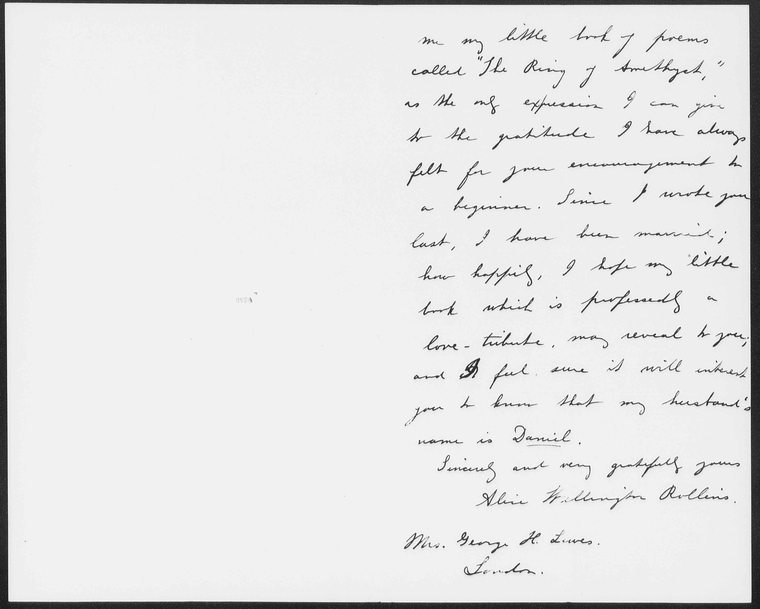 me my little book of poems
called "The Ring of Amethyst,"
as the only expression I can give
to the gratitude I have always
felt for your encouragement to
a beginner. Since I wrote you
last, I have been married;
how happily, I hope my little
book which is professedly a
love-tribute, may reveal to you;
and I feel sure it will interest
you to know that my husband's
name is Daniel.
Sincerely and very gratefully yours
Alice Wellington Rollins.
Mrs. George H. Lewes.
London.